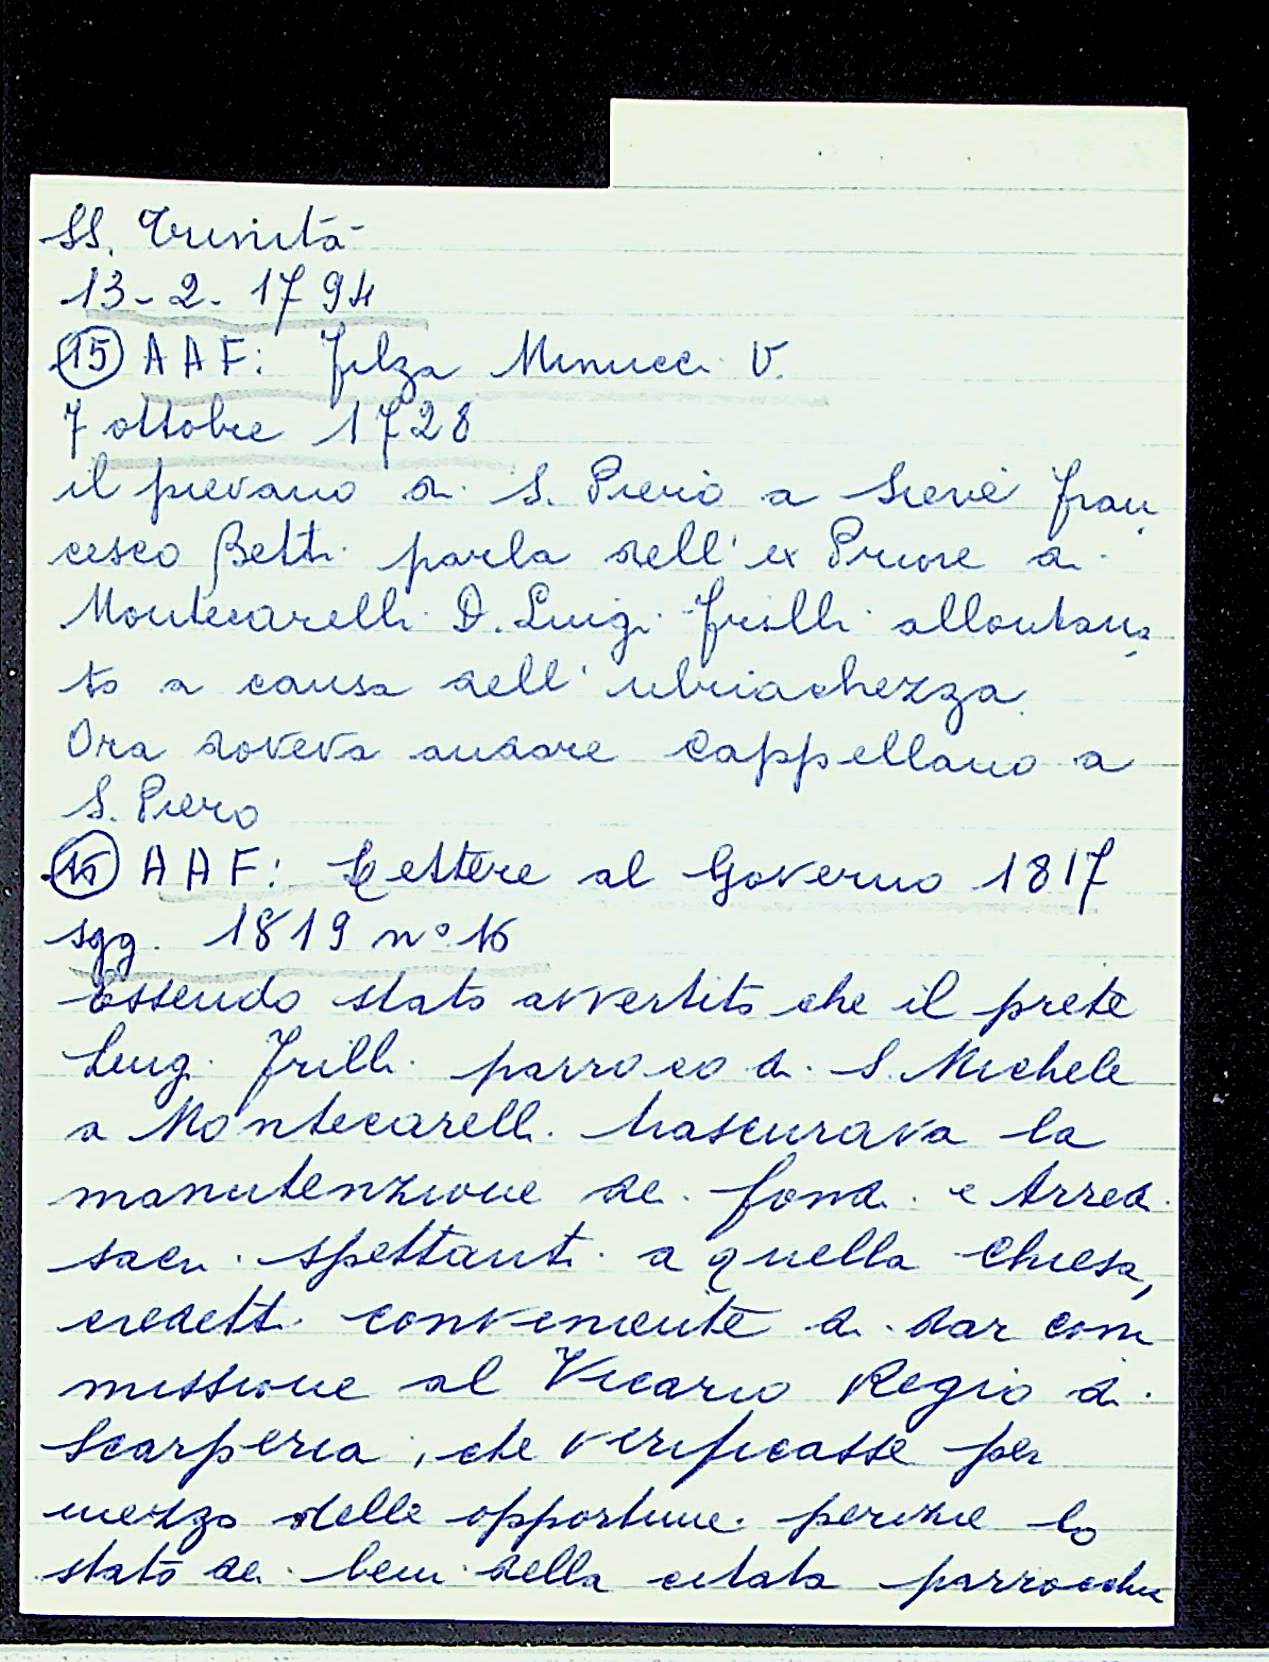 SS. Trinità
13-2-1794
15 AAF: Filza Minucci V.
7 ottobre 1728
il pievano di S. Piero a Sieve Fran
cesco Betti parla dell'ex Priore di
Montecarelli D. Luigi Frilli allontana
to a causa dell'ubriachezza.
Ora doveva andare Cappellano a
S. Piero
16 AAF: Lettere al Governo 1817
sgg. 1819 n° 16
Essendo stato avvertito che il prete
Luigi Frilli parroco di S. Michele
a Montecarelli trascurava la
manutenzione dei fondi e Arredi
sacri spettanti a quella Chiesa,
credetti conveniente di dar com
missione al Vicario Regio di
Scarperia, che verificasse per
mezzo delle opportune perizie lo
stato dei beni della citata parrocchia